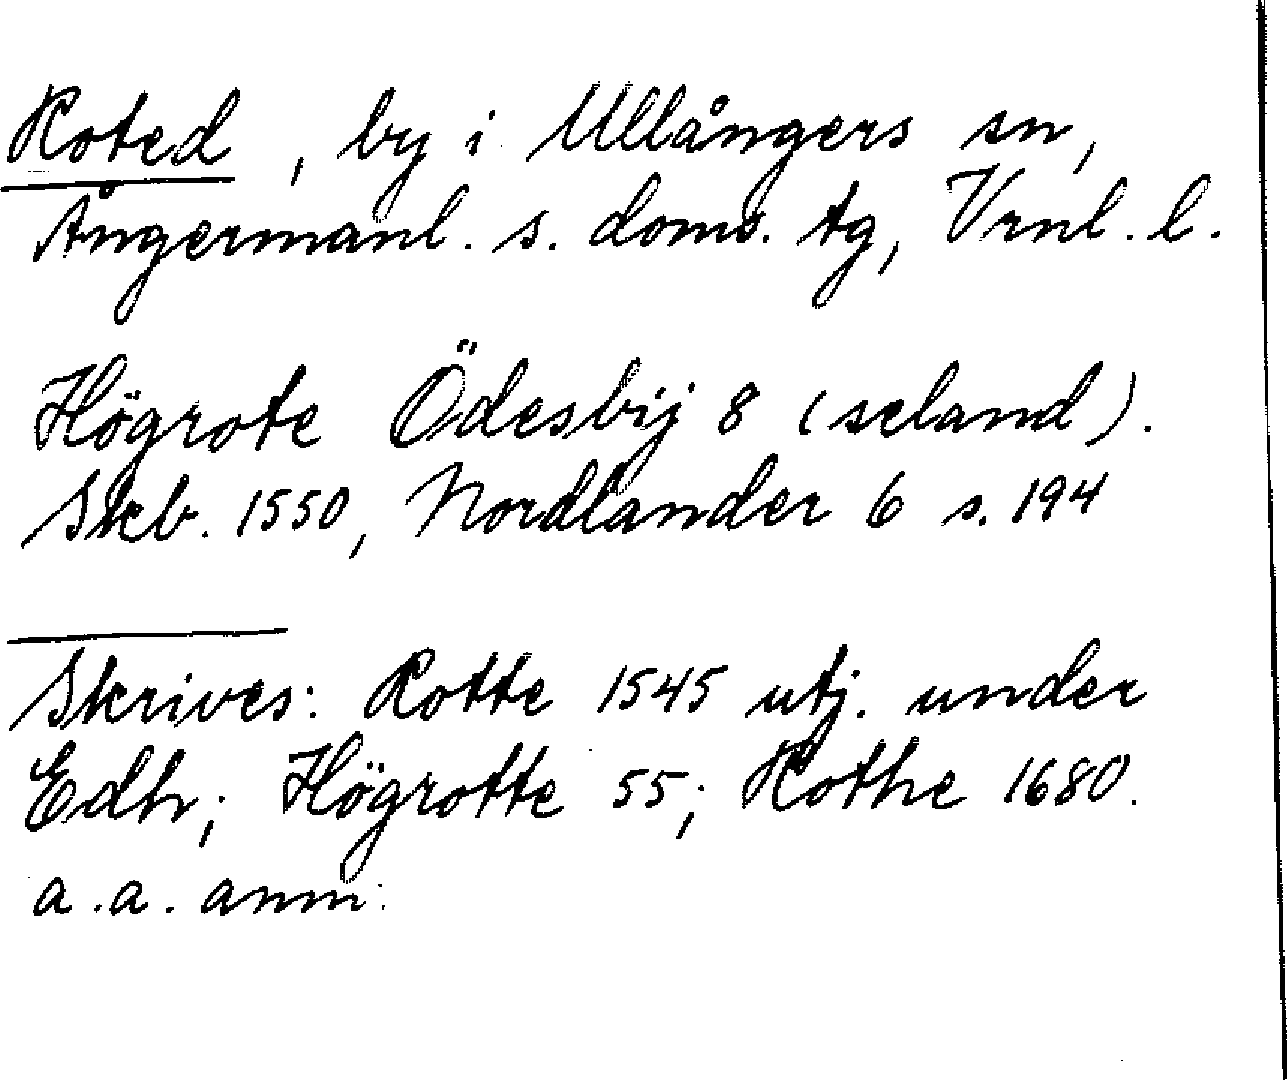 Roted, by i Ullångers sn,
Ångermanl. s. doms. tg, Vrnl. l.
Högrote Ödesbij 8 (seland).
Skb. 1550, Nordlander 6 s. 194
Skrives: Rotte 1545 utj. under
Edh; Högrotte 55; Rothe 1680.
a.a. anm.